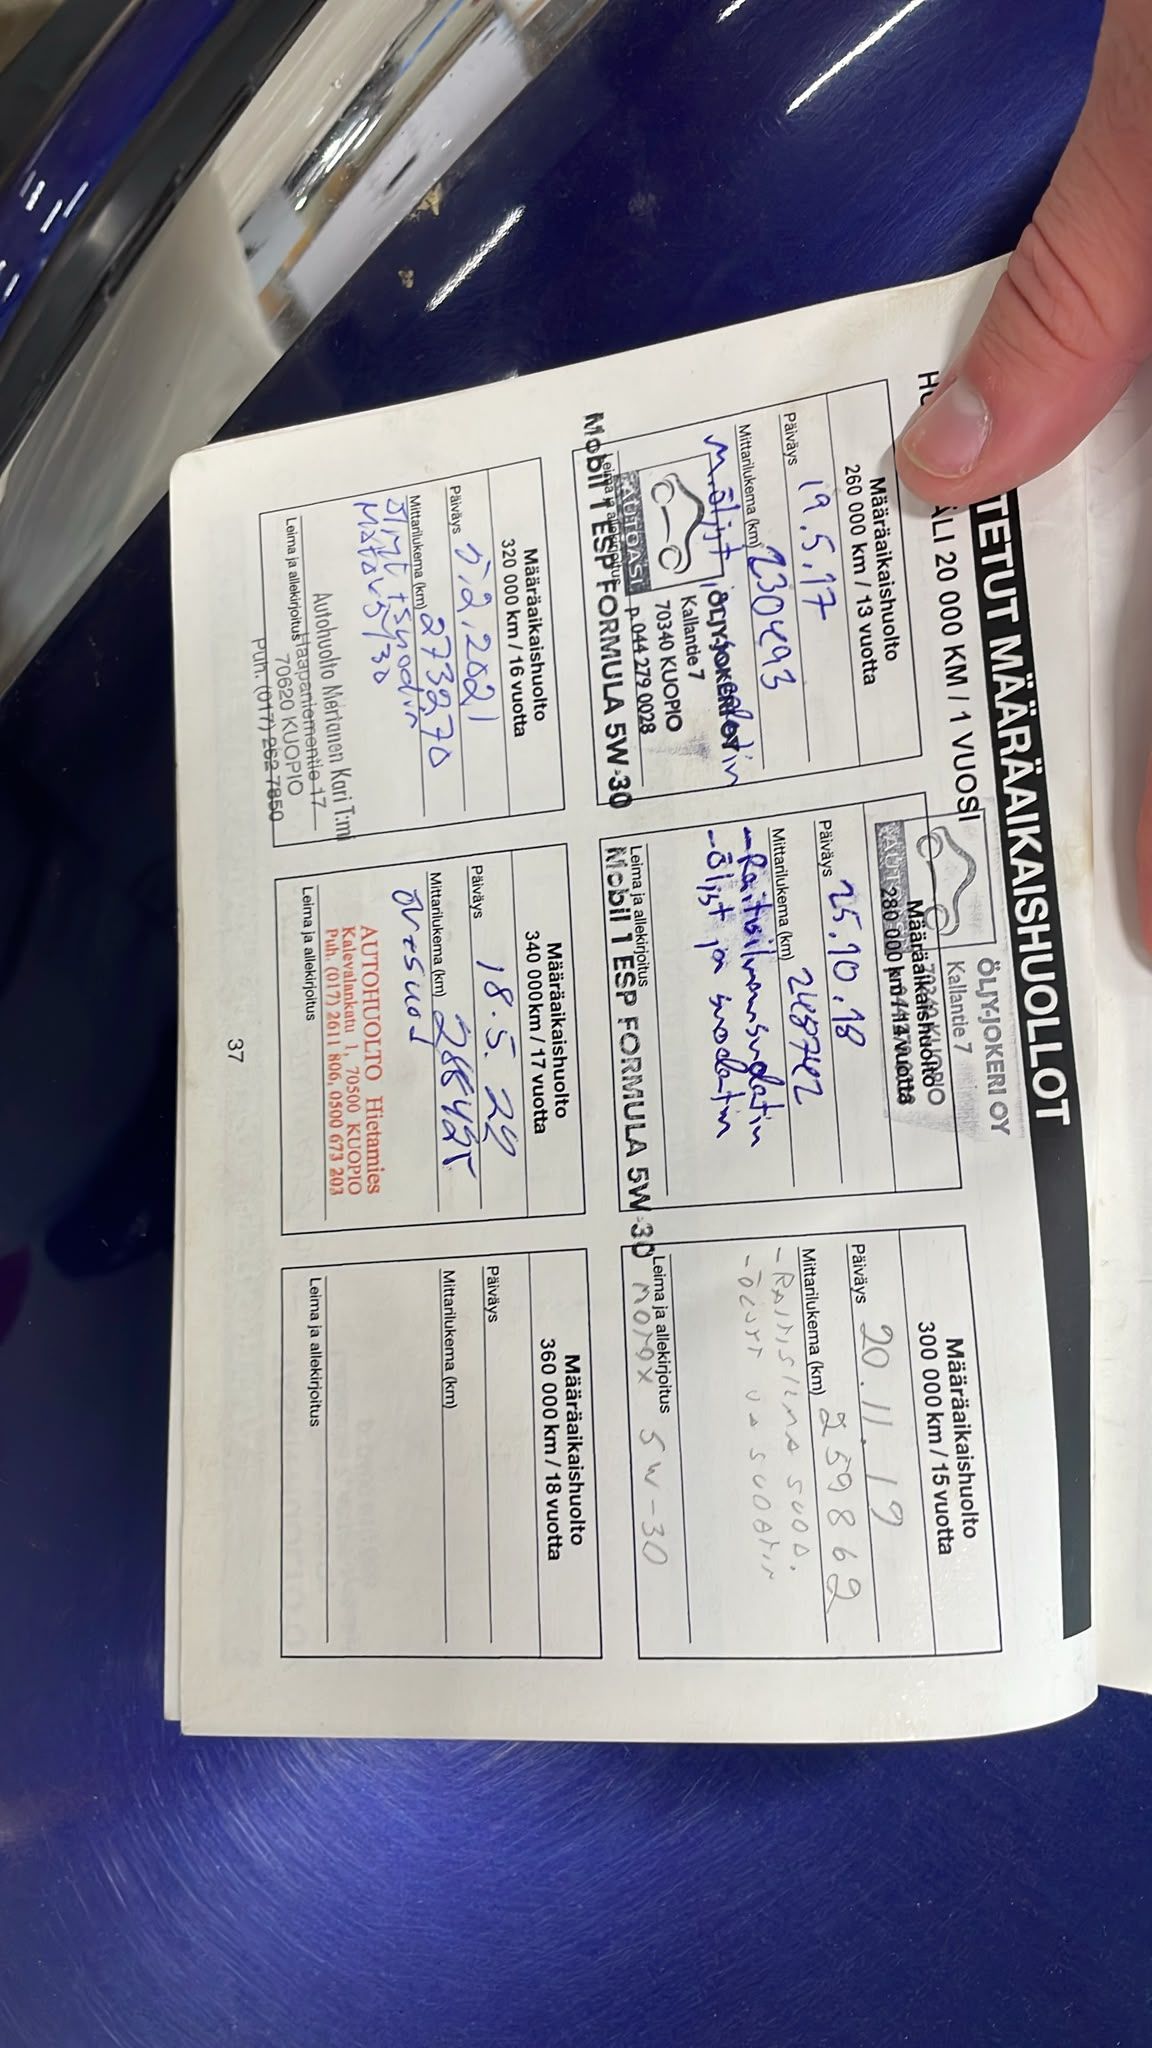 TETUT MÄÄRÄAIKAISHUOLLOT
ÄLI 20 000 KM / 1 VUOSI
Määräaikaishuolto
260 000 km / 13 vuotta
Päiväys 19.5.17
Mittarilukema (km) 230493
M.öljyt ja suodatin
ÖLJY-JOKERI OY
Kallantie 7
70340 KUOPIO
P.044 279 0028
Leima ja allekirjoitus
Mobil 1 ESP FORMULA 5W-30
ÖLJY-JOKERI OY
Kallantie 7
70340 KUOPIO
Määräaikaishuolto
280 000 km / 14 vuotta
Päiväys 25.10.18
Mittarilukema (km) 248742
- Raitisilmansuodatin
- Öljyt ja suodatin
Leima ja allekirjoitus
Mobil 1 ESP FORMULA 5W-30
Määräaikaishuolto
300 000 km / 15 vuotta
Päiväys 20.11.19
Mittarilukema (km) 259862
- RAITISILMA SUOD.
- ÖLJYT JA SUODATIN
Leima ja allekirjoitus
5W-30
Määräaikaishuolto
320 000 km / 16 vuotta
Päiväys 5.2.2021
Mittarilukema (km) 273270
5/30
Autohuolto Mertanen Kari T:mi
Leima ja allekirjoitus Haapaniementie 17
70620 KUOPIO
Puh. (017) 262 7850
Määräaikaishuolto
340 000km / 17 vuotta
Päiväys 18.5.22
Mittarilukema (km) 288425
AUTOHUOLTO Hietamies
Kalevalankatu 1, 70500 KUOPIO
Puh. (017) 2611 806, 0500 673 203
Leima ja allekirjoitus
Määräaikaishuolto
360 000 km / 18 vuotta
Päiväys
Mittarilukema (km)
Leima ja allekirjoitus
37